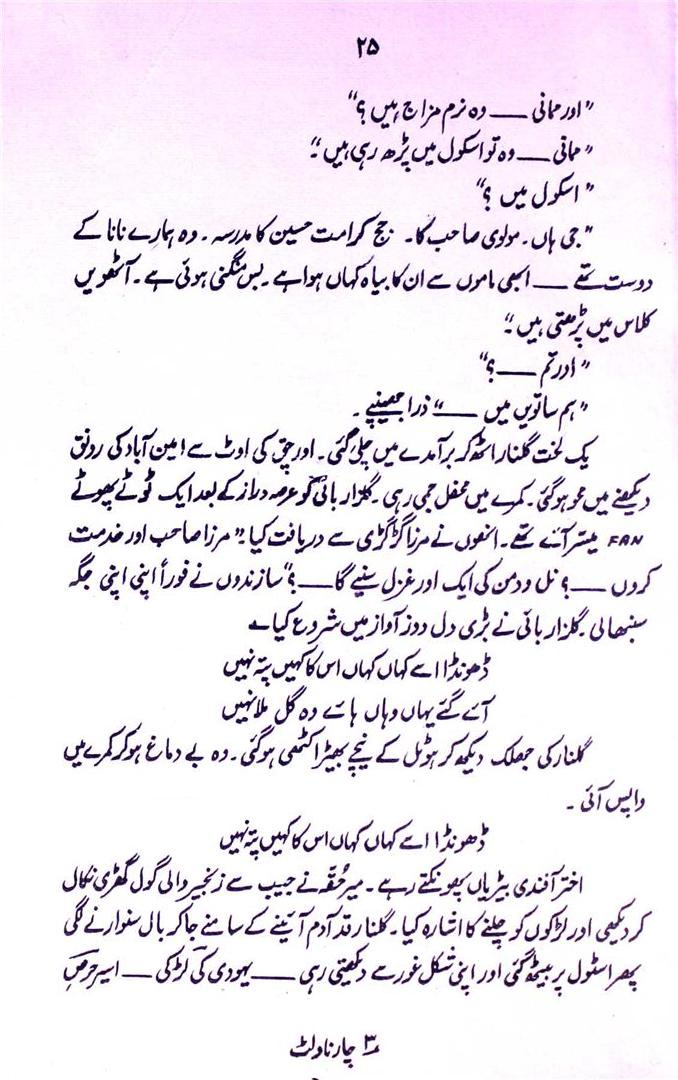 ۲۵
”اور ممانی ــــ وہ نرم مزاج ہیں ؟“
”ممانی ــــ وہ تو اسکول میں پڑھ رہی ہیں“
”اسکول میں ؟“
”جی ہاں۔ مولوی صاحب کا۔ جج کرامت حسین کا مدرسہ۔ وہ ہمارے نانا کے
دوست تھے ــــ ابھی ماموں سے ان کا بیاہ کہاں ہوا ہے۔ بس منگنی ہوئی ہے۔ آٹھویں
کلاس میں پڑھتی ہیں“
”اور تم ــــ ؟“
”ہم ساتویں میں ــــ“ ذرا جھینپے۔
یک لخت گلنار اٹھ کر برآمدے میں چلی گئی۔ اور چق کی اوٹ سے امین آباد کی رونق
دیکھنے میں محو ہوگئی۔ کمرے میں محفل جمی رہی۔ گلزار بائی کو عرصہ دراز کے بعد ایک ٹوٹے پھوٹے
FAN میسر آئے تھے۔ انھوں نے مرزا گڑگڑی سے دریافت کیا۔ ”مرزا صاحب اور خدمت
کروں ــــ ؟ نل و دمن کی ایک اور غزل سنیے گا ــــ ؟“ سازندوں نے فوراً اپنی اپنی جگہ
سنبھالی۔ گلزار بائی نے بڑی دل دوز آواز میں شروع کیا ؎
ڈھونڈا اسے کہاں کہاں اس کا کہیں پتہ نہیں
آئے گئے یہاں وہاں ہائے وہ گل ملا نہیں
گلنار کی جھلک دیکھ کر ہوٹل کے نیچے بھیڑ اکٹھی ہوگئی۔ وہ بے دماغ ہوکر کمرے میں
واپس آئی۔
ڈھونڈا اسے کہاں کہاں اس کا کہیں پتہ نہیں
اختر آفندی بیڑیاں پھونکتے رہے۔ میر حُقّہ نے جیب سے زنجیر والی گول گھڑی نکال
کر دیکھی اور لڑکوں کو چلنے کا اشارہ کیا۔ گلنار قد آدم آئینے کے سامنے جاکر بال سنوارنے لگی
پھر اسٹول پر بیٹھ گئی اور اپنی شکل غور سے دیکھتی رہی ــــ یہودی کی لڑکی ــــ اسیر حرص
۳ چار ناولٹ